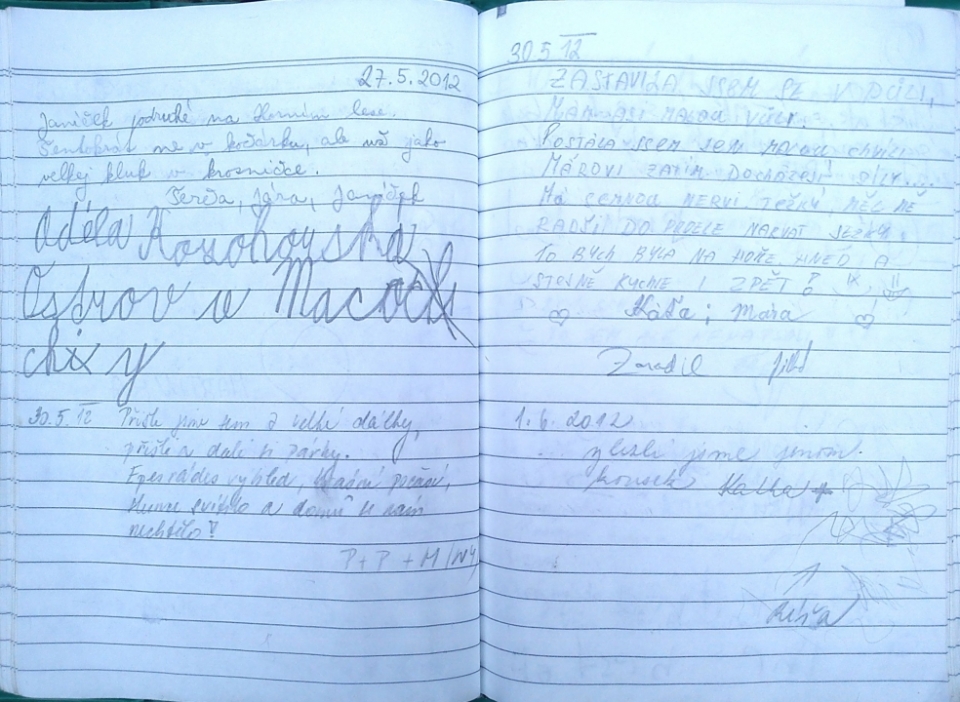 27.5.2012
Janíček podruhé na Horním lese.
Tentokrát ne v kočárku, ale už jako
velkej kluk v krosničce.
Terča, Jára, Janíček
Adéla
Ostrov u Macochy
30.5.12 Přišli jsme sem z velké dálky,
přišli a dali si párky.
výhled, krásné počasí,
slunce svítilo a domů se nám
nechtělo!
P + P + M
30.5.12
ZASTAVILA JSEM SE V PŮLI,
MÁM ASI MALOU VŮLI.
POSTÁLA JSEM JEN MALOU CHVÍLI
MÁROVI ZATÍM DOCHÁZEJÍ SÍLY...
MÁ SEMNOU NERVI TĚŽKÝ, MĚL MĚ
RADŠI DO PRDELE NARVAT JEŽKY.
TO BYCH BYLA NA HOŘE HNED, A
STEJNĚ RYCHLE I ZPĚT!
Káťa i Mára
1.6.2012
vlezli jsme jenom
kousek Katka +